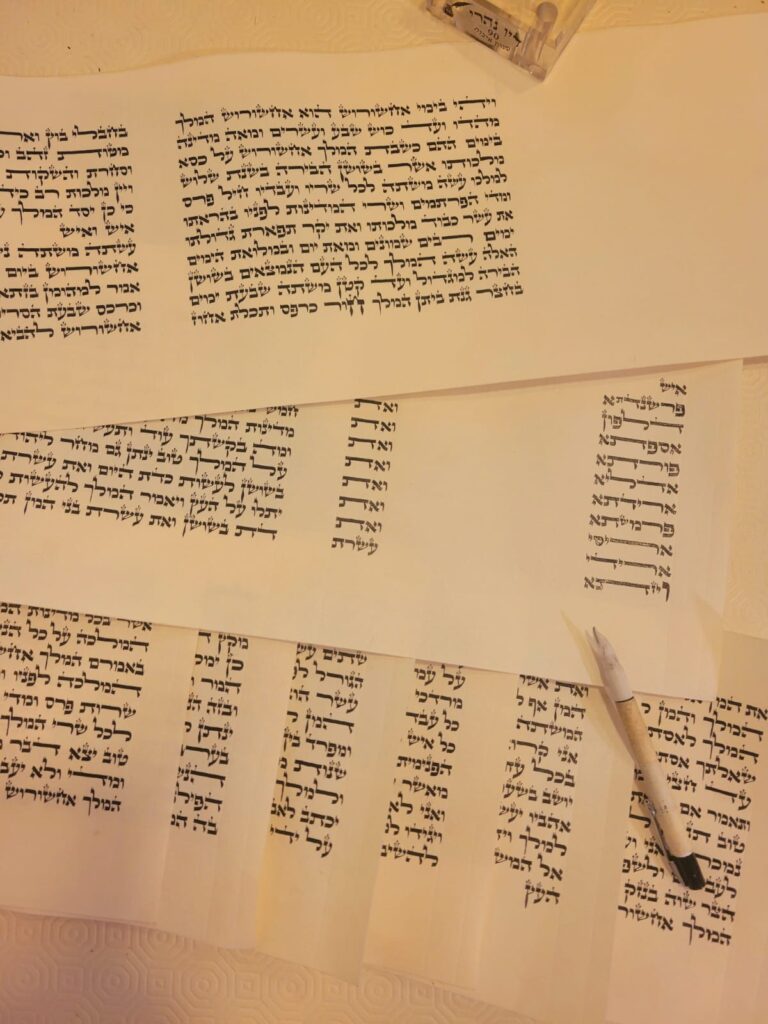 דיו נהרי
90
ויהי בימי אחשורוש הוא אחשורוש המלך
מהדו ועד כוש שבע ועשרים ומאה מדינה
בימים ההם כשבת המלך אחשורוש על כסא
מלכותו אשר בשושן הבירה בשנת שלוש
למלכו עשה משתה לכל שריו ועבדיו חיל פרס
ומדי הפרתמים ושרי המדינות לפניו בהראתו
את עשר כבוד מלכותו ואת יקר תפארת גדולתו
ימים רבים שמונים ומאת יום ובמלואת הימים
האלה עשה המלך לכל העם הנמצאים בשושן
הבירה למגדול ועד קטן משתה שבעת ימים
בחצר גנת ביתן המלך חור כרפס ותכלת אחוז
בחבלי בוץ ואר
מטות זהב וכ
וסחרת והשקות
ויין מלכות רב כיד
כי כן יסד המלך ע
איש ואיש
עשתה משתה נ
אחשורוש ביום
אמר למהומן בזתא
וכרכס שבעת הסרי
אחשורוש להביא
איש
פרשנדתא
דלפון
אספתא
פורתא
אדליא
ארידתא
פרמשתא
אריסי
ארידי
ויזתא
ואת
ואת
ואת
ואת
ואת
ואת
ואת
עשרת
חמש
מדינות המלך
ומה בקשתך עוד ותעש
על המלך טוב ינתן גם מחר ליהוד
בשושן לעשות כדת היום ואת עשרת
יתלו על העץ ויאמר המלך להעשות כ
דת בשושן ואת עשרת בני המן תל
את ה
המלך והמן
המלך לאסת
שאלתך אסת
עד חצי
ותאמר אם
טוב
נמכר
ולשפ
הצר שוה בנזק
המלך אחשור
ואת אשר
המן אף ל
המשתה
אני קרו
בכל עת
יושב בשע
אהביו יעש
למלך ויד
אל המש
העץ
על עמו
מרדכי
כל עבד
כל איש
הפנימית
מאשר
ואני לא
ויגידו למ
להשיב
שתים עש
הגורל ל
עשר הוא
המן ל
ומפרד בין
שנות מ
ולמלך
יכתב לאב
על ידי
מקץ
כן ימל
המר
ובזה הנ
ינתן
בער
הנש
הפיל
בה המ
אשר בכל מדינות
המלכה על כל הנ
באמרם המלך אחש
המלכה לפניו ו
שרות פרס ומדי
לכל שרי המלך
טוב יצא דבר מ
ומדי ולא יעב
המלך אחשורוש